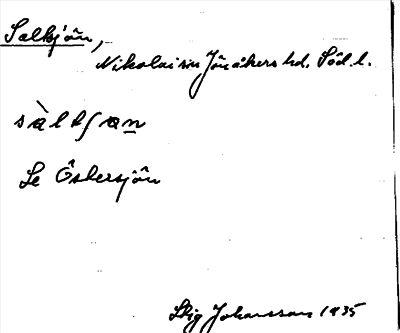 Saltsjön,
Nikolai sn Jönåkers hd. Södl.
sàltʃøn
Se Östersjön
Stig Johansson 1935